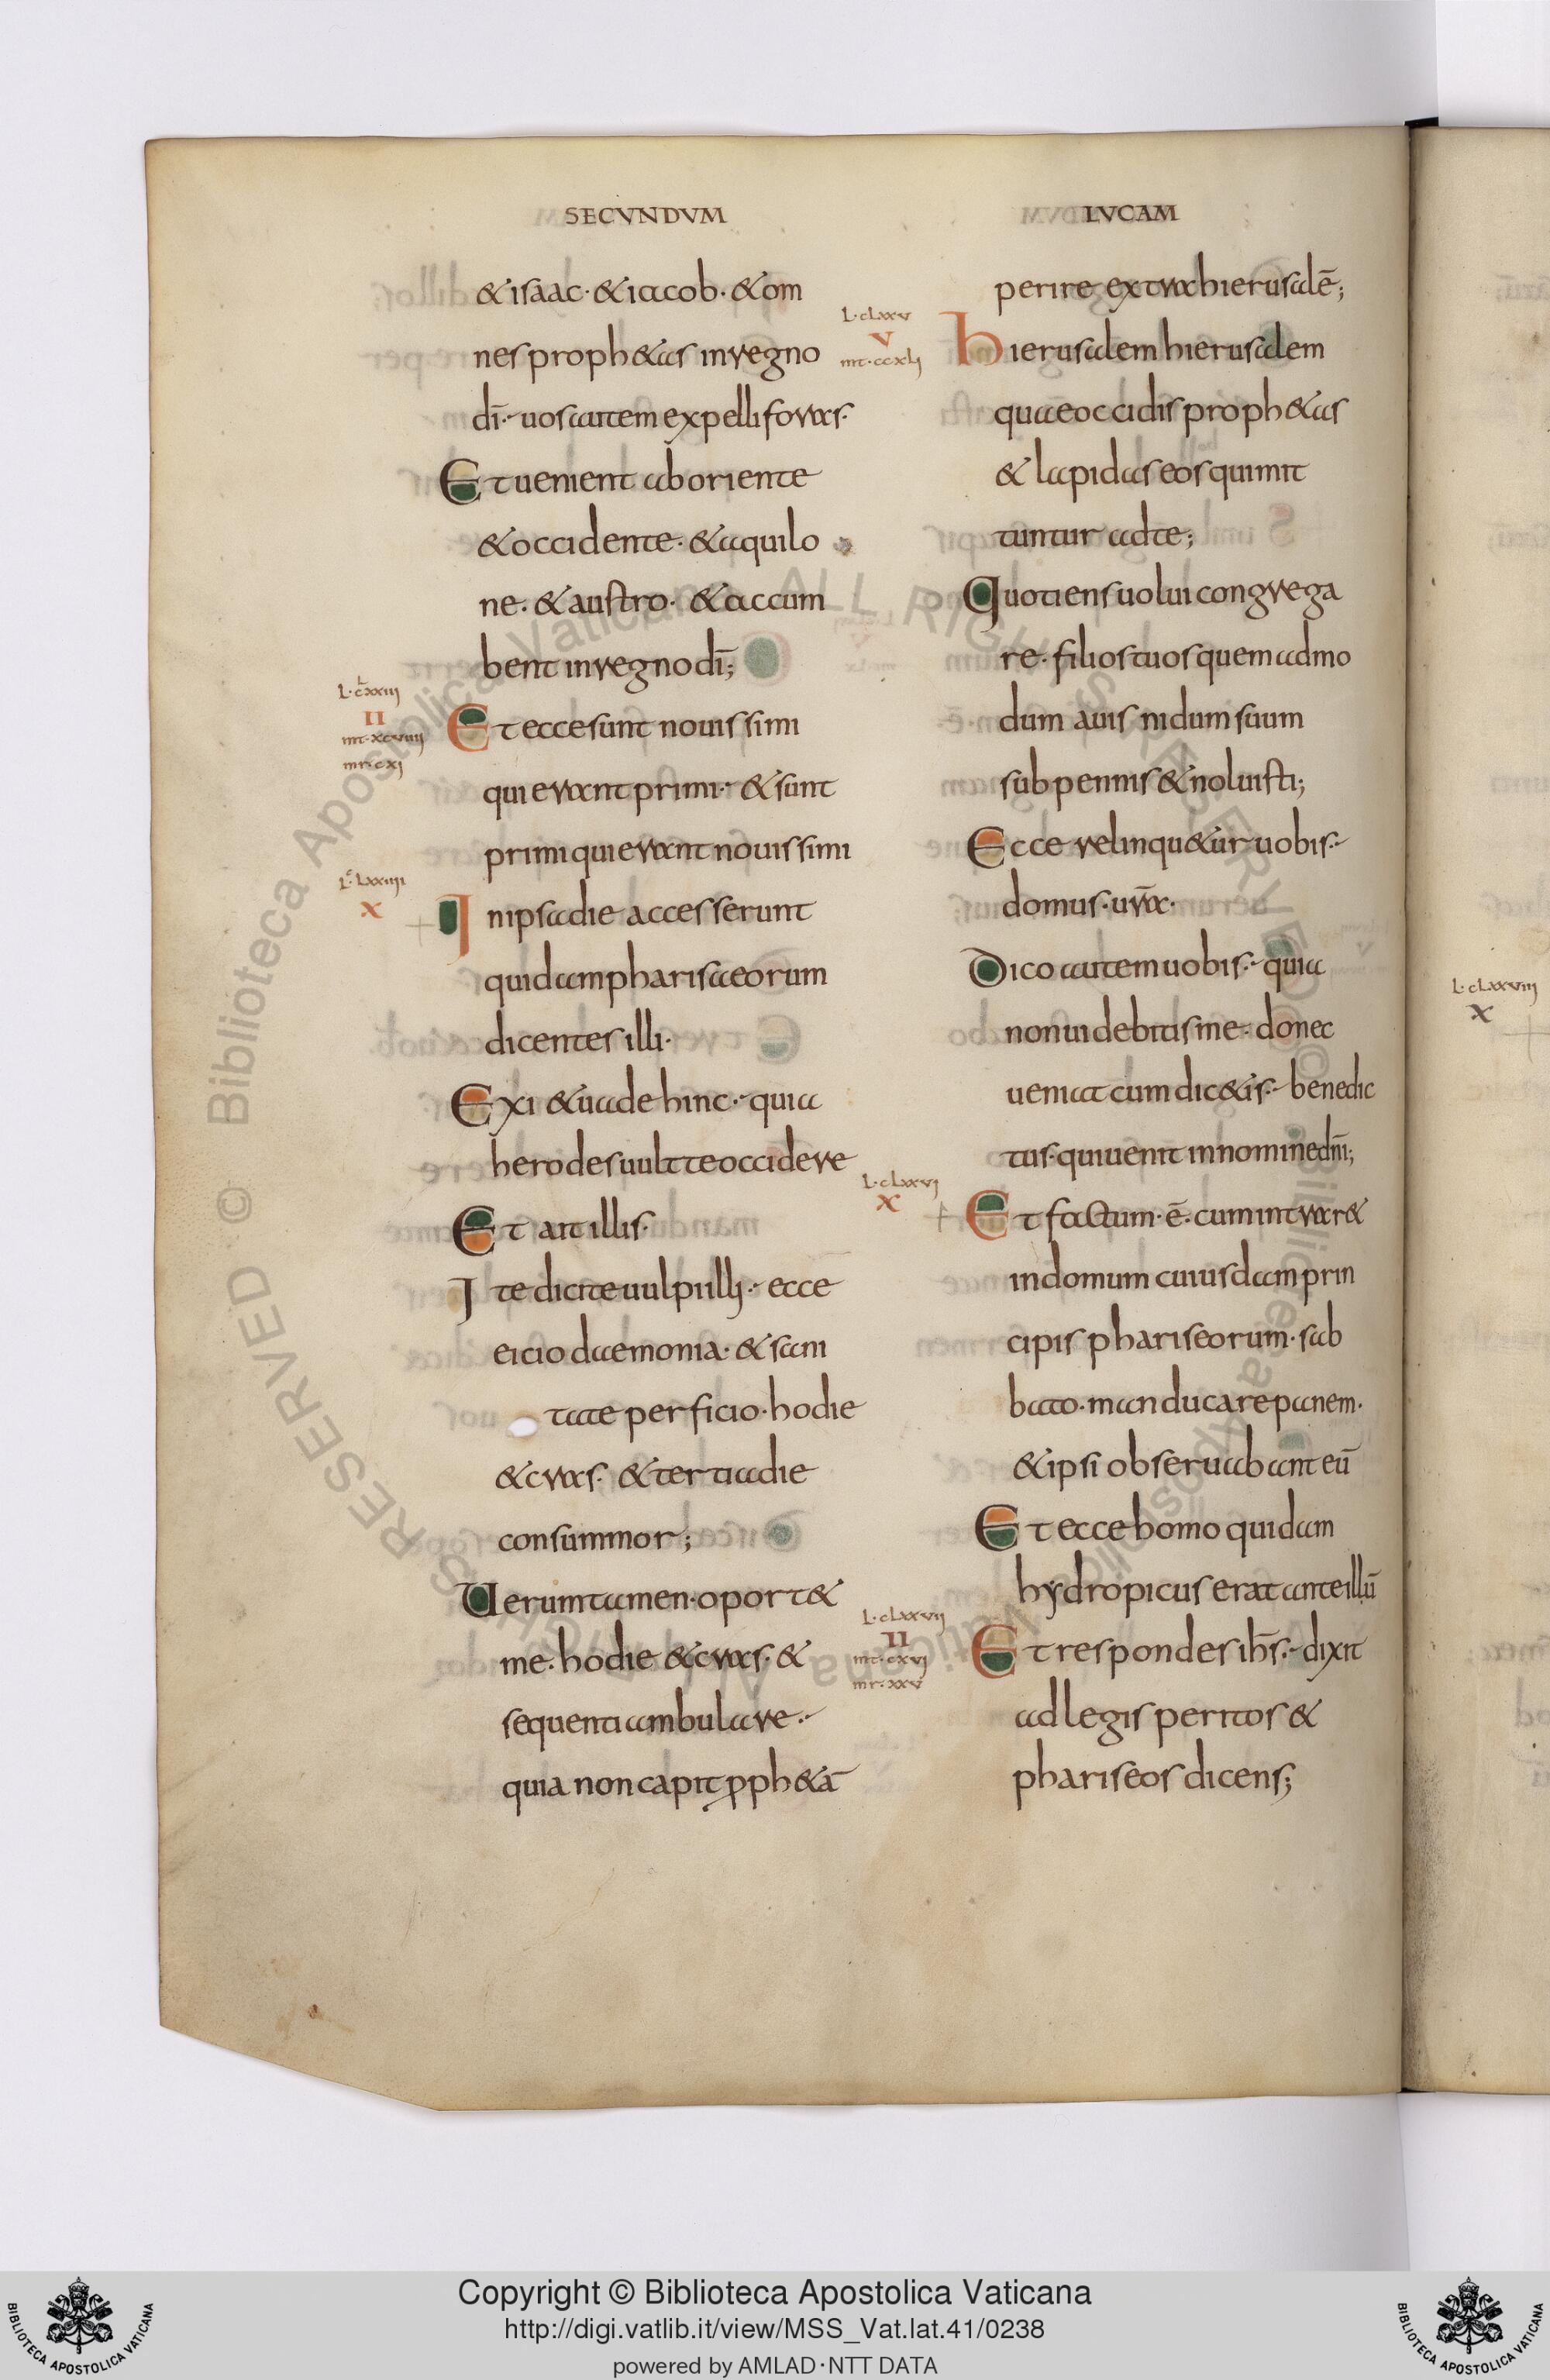 SECVNDVM
& isaac· & iacob· & om
nes proph&as in regno
dī· uos autem expelli foras·
Et uenient ab oriente
& occidente· & aquilo
ne· & austro· & accum
bent in regno dī;
L·cLxxiii
II
mt·xcviiii
mr·cxj
Et ecce sunt nouissimi
qui erant primi· & sunt
primi qui erant nouissimi
Lc̄Lxxiiii
X
In ipsa die accesserunt
quidam pharisaeorum
dicentes illi·
Exi & uade hinc· quia
herodes uult te occidere
Et ait illis·
Ite dicite uulpi illj· ecce
eicio daemonia· & sani
tate perficio· hodie
& cras· & tertia die
consummor;
Uerumtamen· oport&
me· hodie & cras· &
sequenti ambulare·
quia non capit ꝓph&ā
LVCAM
perire extra hierusalē;
L·cLxxv
V
mt·ccxlj
hierusalem hierusalem
quae occidis proph&as
& lapidas eos qui mit
tuntur ad te;
Quotiens uolui congrega
re· filios tuos quemadmo
dum auis nidum suum
sub pennis & noluisti;
Ecce relinqu&ur uobis·
domus· ur̄a·
Dico autem uobis· quia
non uidebitis me· donec
ueniat cum dic&is· benedic
tus· qui uenit in nomine dn̄i;
L·cLxxvj
X
Et factum· ē· cum intrar&
in domum cuiusdam prin
cipis phariseorum· sab
bato· manducare panem·
& ipsi obseruabant eū
Et ecce homo quidam
hydropicus erat ante illū
L·cLxxvii
II
mt·cxvj
mr·xxv
Et respondes ih̄s· dixit
ad legis peritos &
phariseos dicens;
L·cLxxviii
X
© Biblioteca Apostolica Vaticana ALL RIGHTS RESERVED
Copyright © Biblioteca Apostolica Vaticana
http://digi.vatlib.it/view/MSS_Vat.lat.41/0238
powered by AMLAD·NTT DATA
BIBLIOTECA APOSTOLICA VATICANA
BIBLIOTECA APOSTOLICA VATICANA